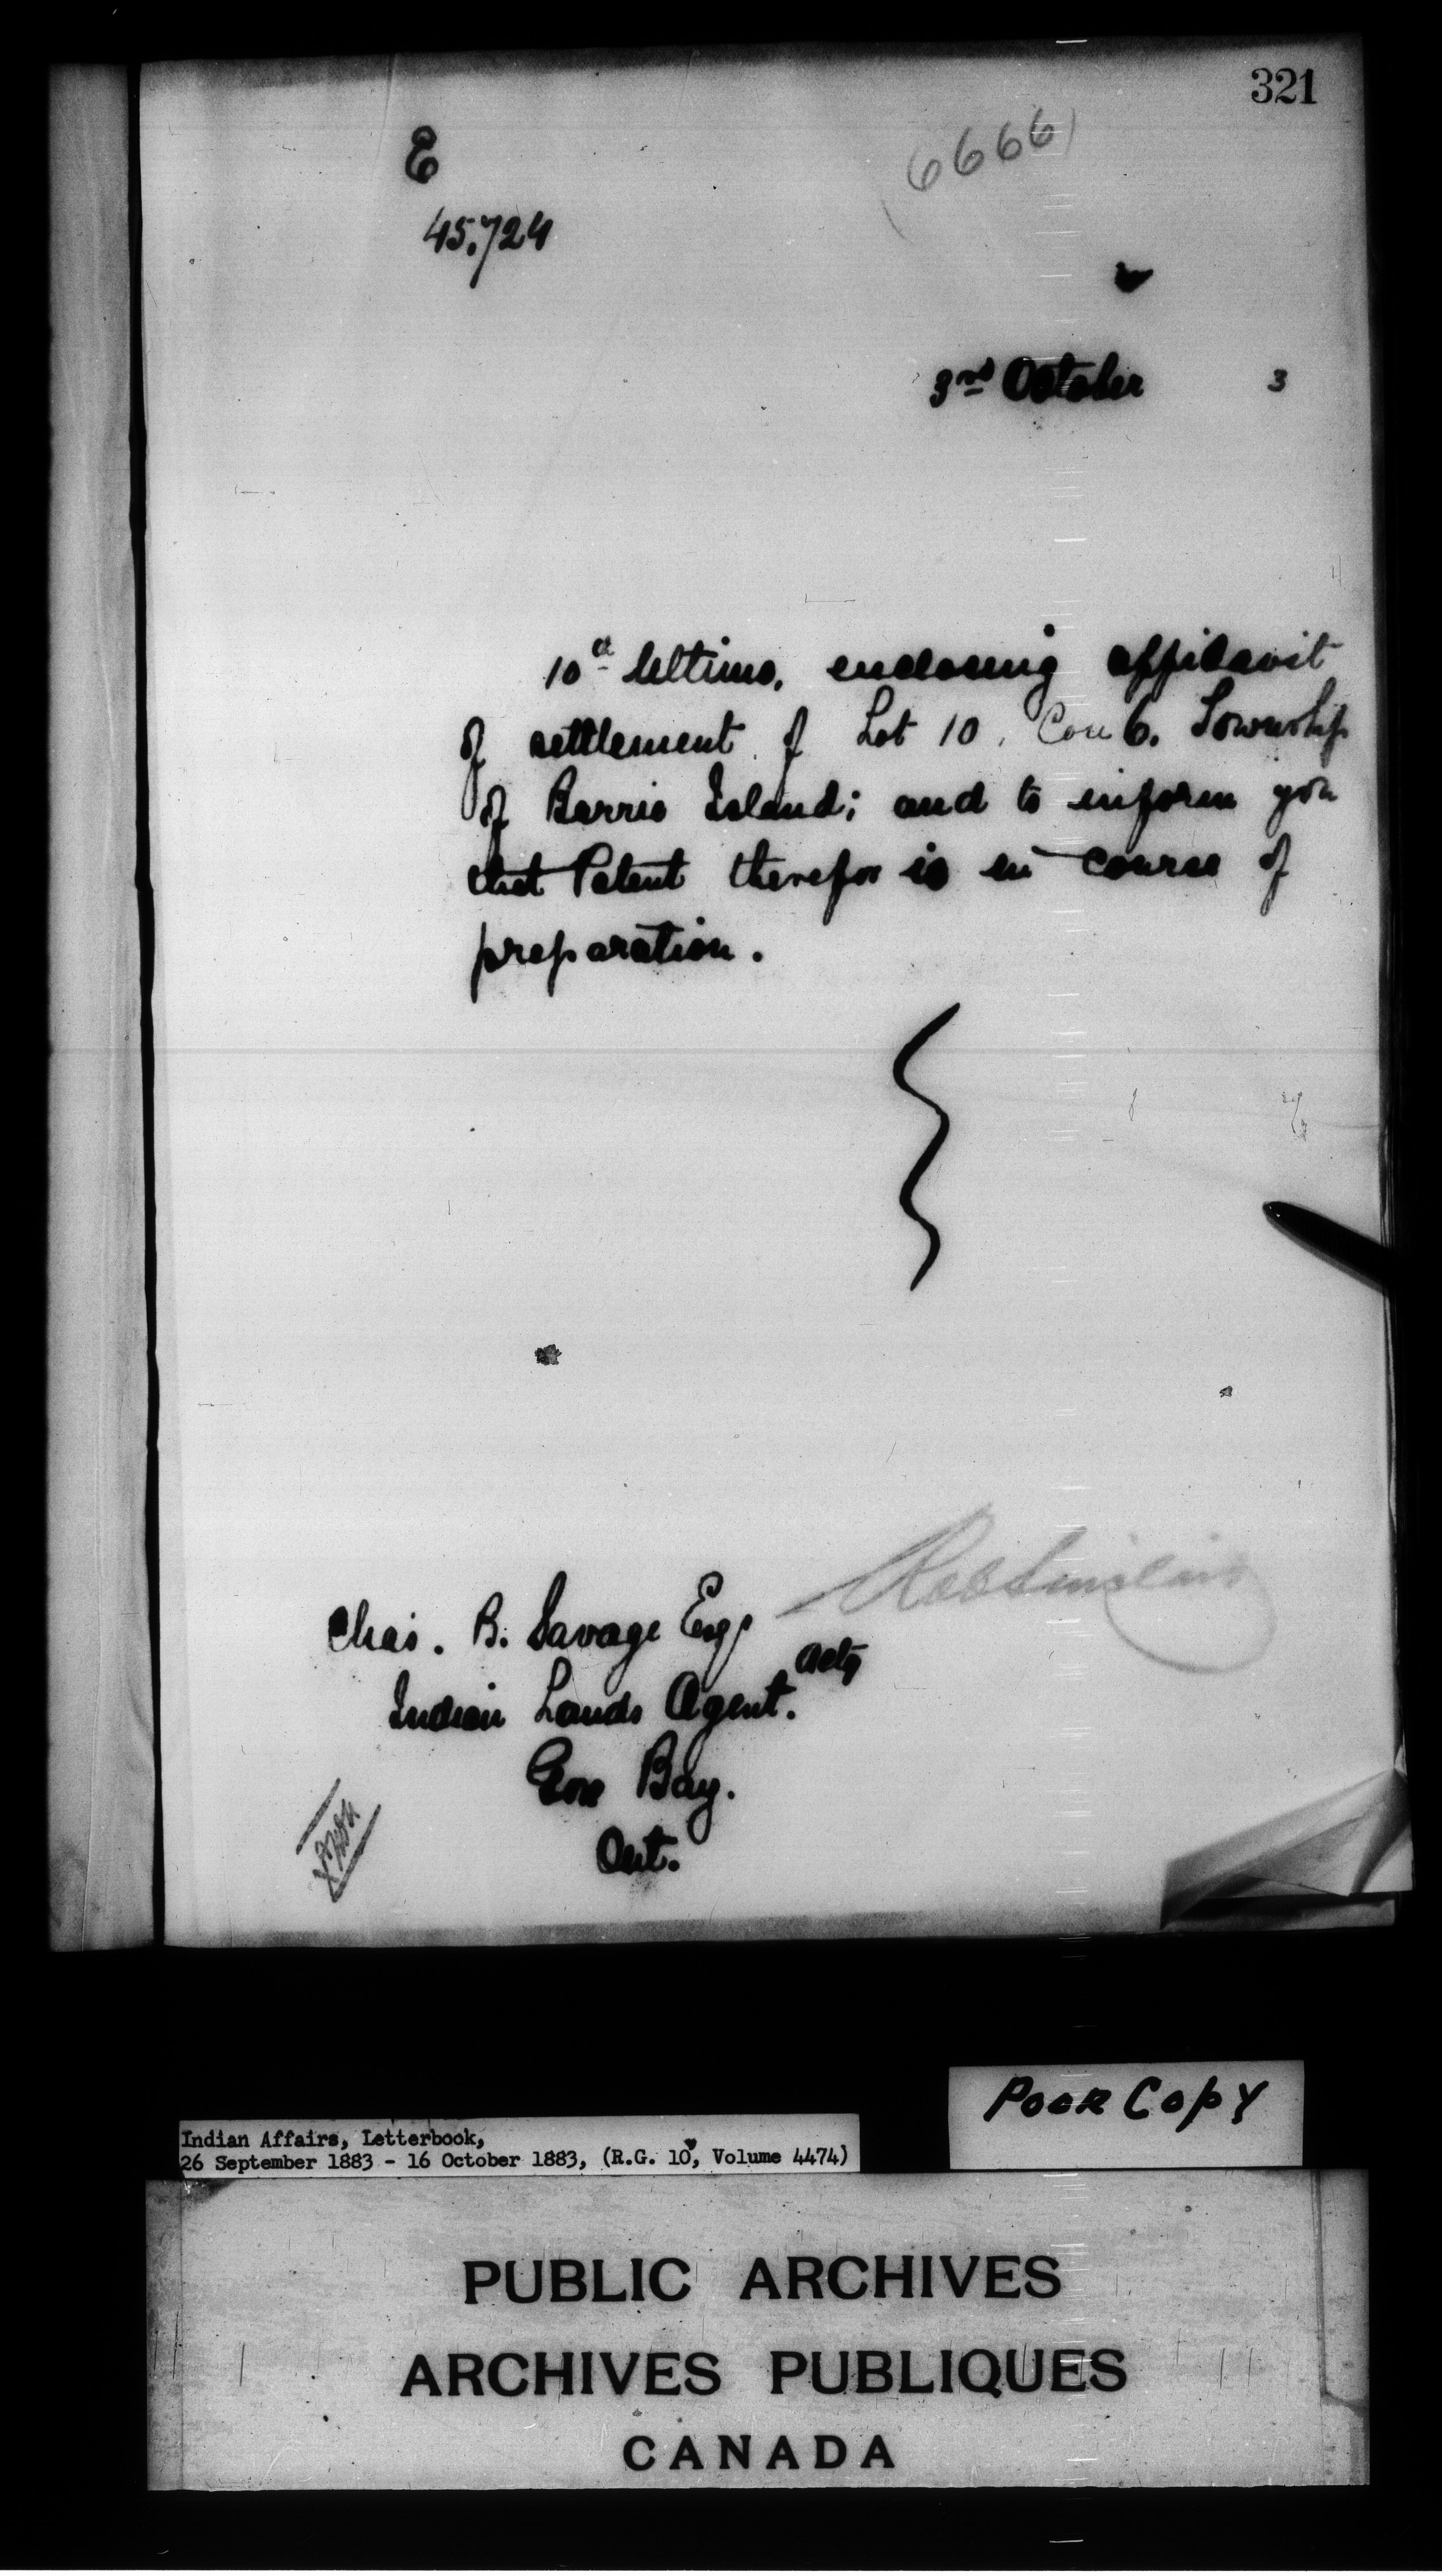 321
E
(6666)
45.724
3rd October 3
10th Ultimo, enclosing affidavit
of settlement of Lot 10, Con 6. Township
of Barrie Island; and to inform you
that Patent therefor is in course of
preparation.
Chas. B. Savage Esq.
actg
Indian Lands Agent.
Gore Bay.
Ont.
Poor Copy
Indian Affairs, Letterbook,
26 September 1883 - 16 October 1883, (R.G. 10, Volume 4474)
PUBLIC ARCHIVES
ARCHIVES PUBLIQUES
CANADA